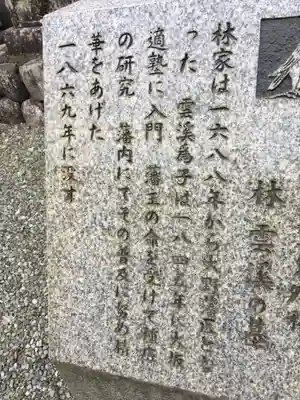 林雲溪の墓
林家は一六八八年から大野藩医とな
った 雲溪為子は一八四五年に大坂
適塾に入門 藩主の命を受けて種痘
の研究 藩内にてその普及に努め精
華をあげた
一八六九年に没す